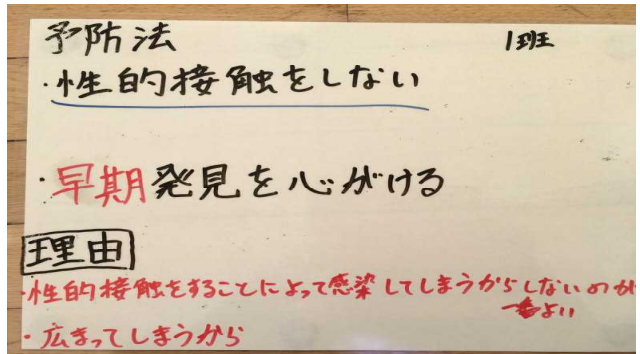 予防法
1班
・性的接触をしない
・早期発見を心がける
理由
・性的接触をすることによって感染してしまうからしないのが
一番よい
・広まってしまうから